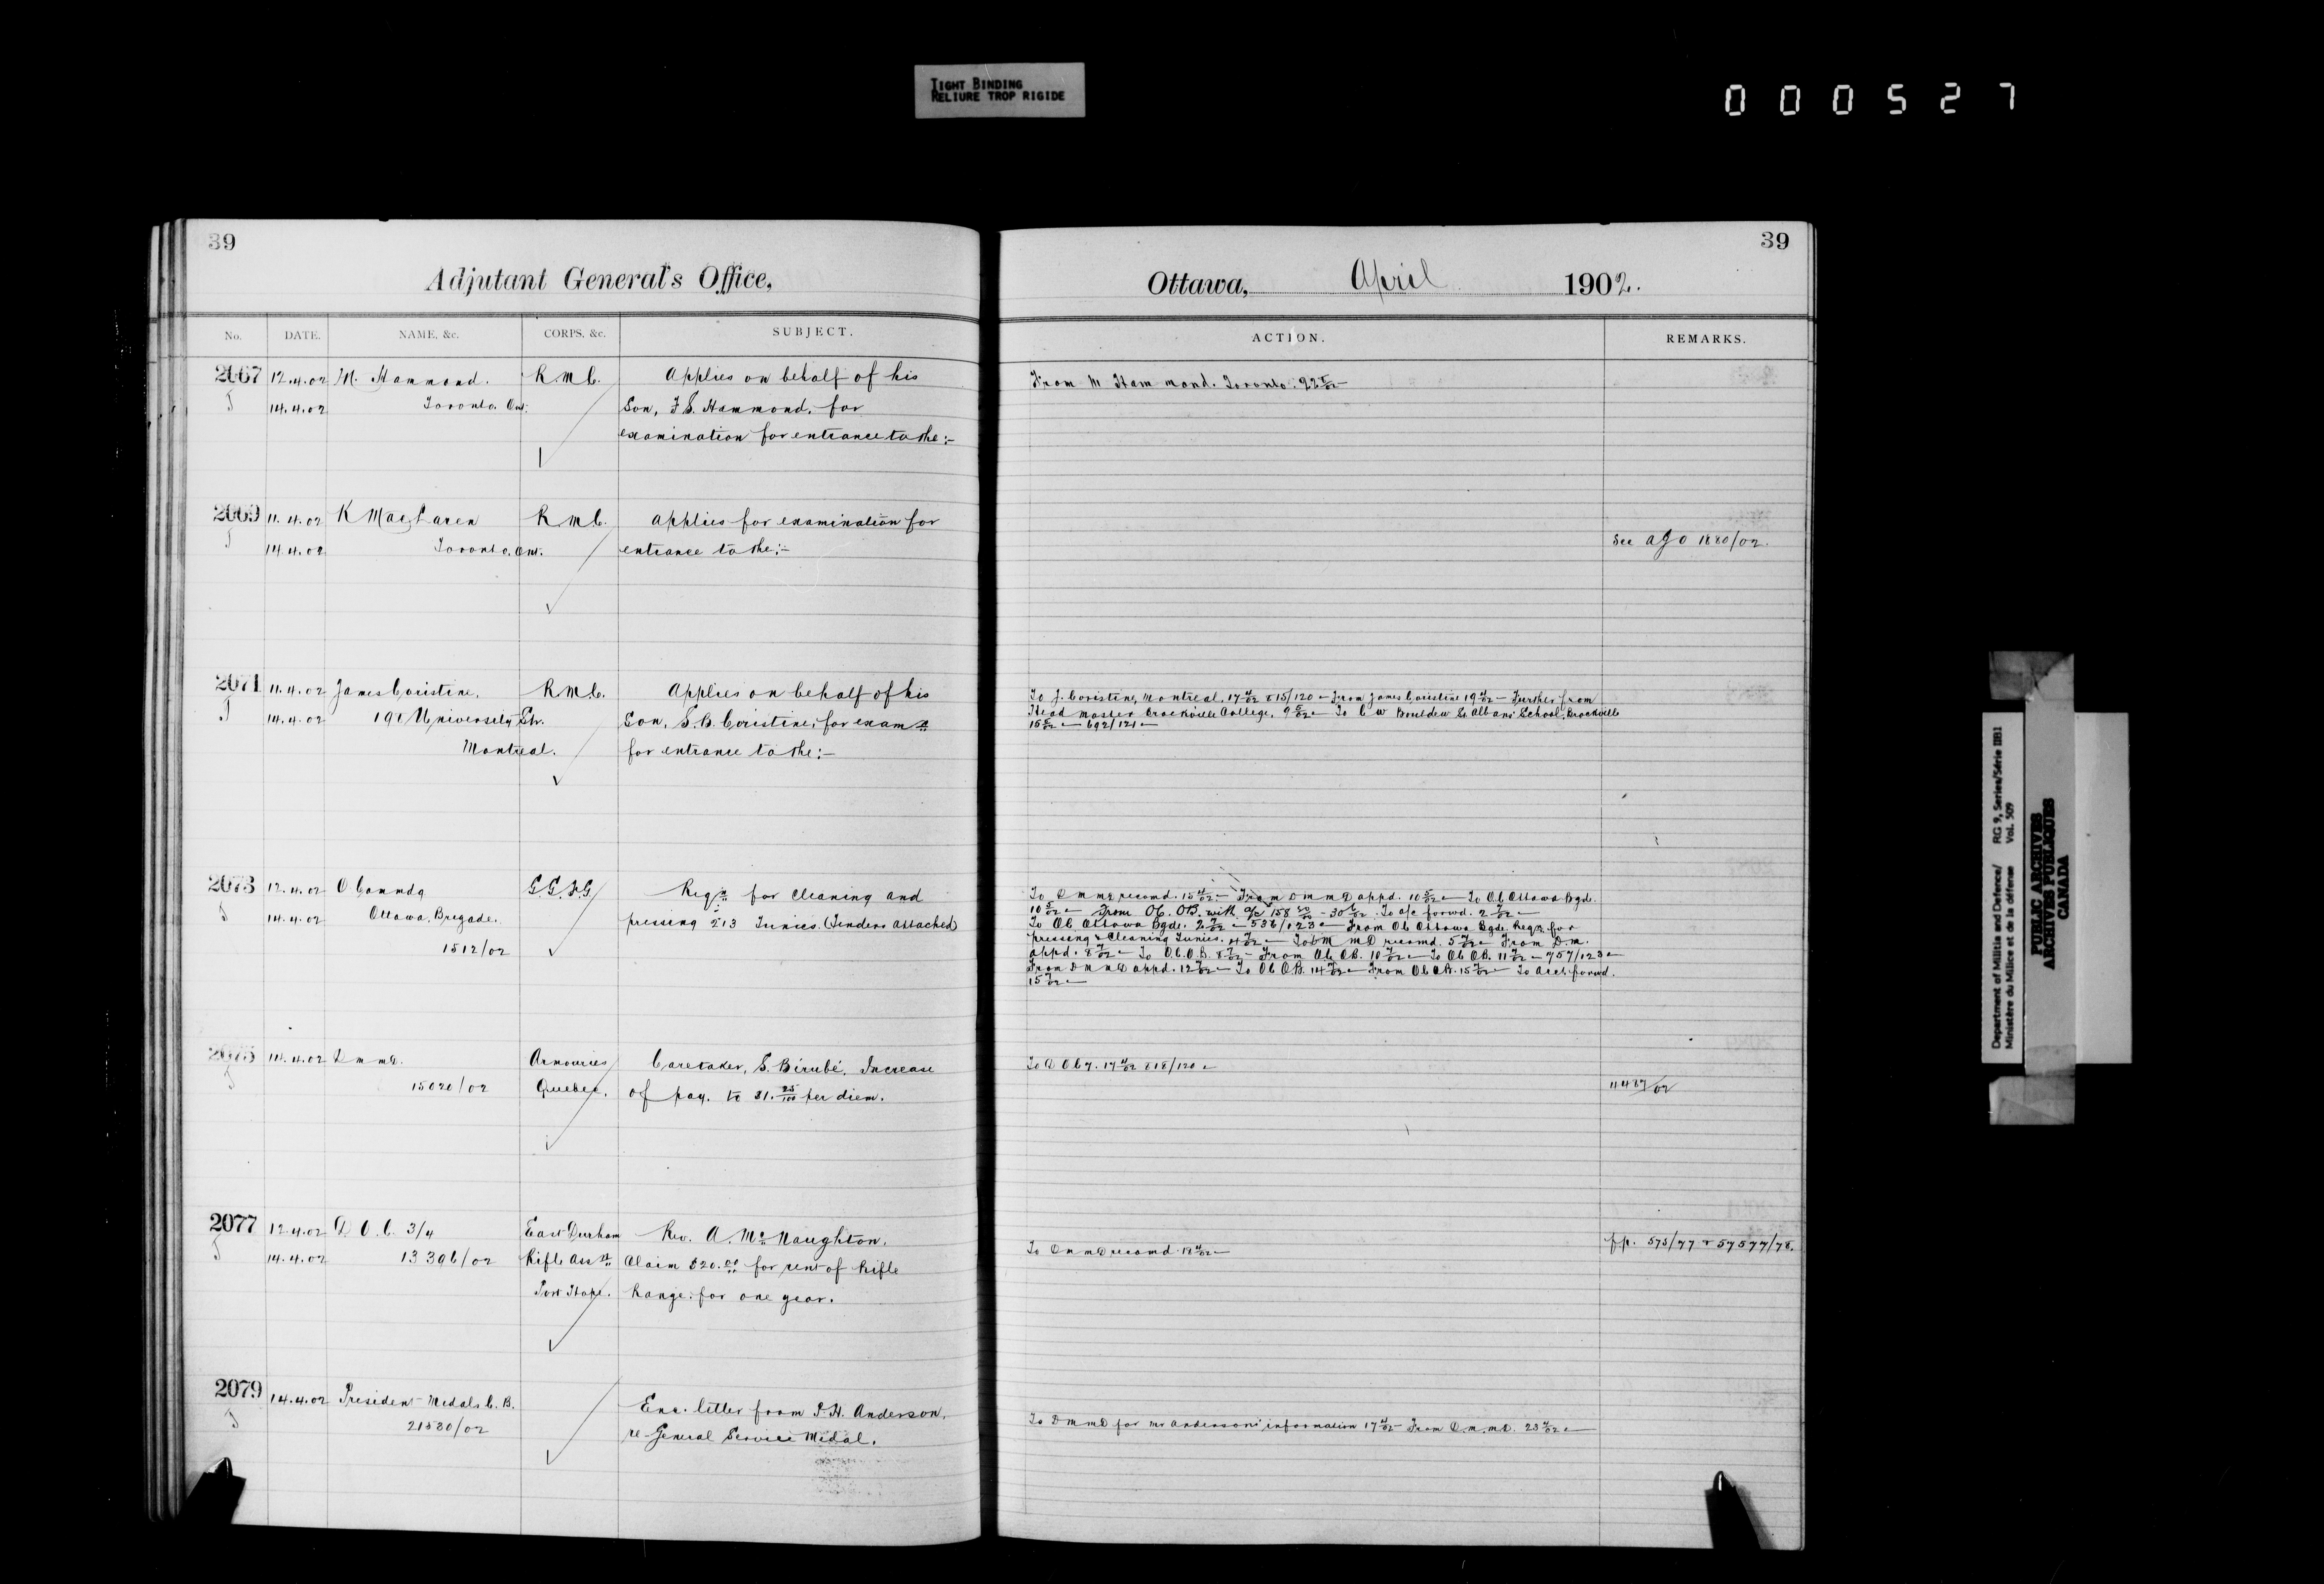 TIGHT BINDING
RELIURE TROP RIGIDE
000527
39
Adjutant General's Office,
No. DATE. NAME, &c. CORPS, &c. SUBJECT.
2067 12.4.02 M. Hammond. R.M.C. Applies on behalf of his
14.4.02 Toronto. Ont. Son, F.S. Hammond, for
examination for entrance to the:-
2069 11.4.02 K MacLaren R.M.C. applies for examination for
14.4.02 Toronto. Ont. entrance to the:-
2071 11.4.02 James Coristine, R.M.C. Applies on behalf of his
14.4.02 191 University Str. Son, S.B. Coristine, for exam n
Montreal. for entrance to the:-
2073 12.4.02 O. Commdg G.G.F.G. Reqn for cleaning and
14.4.02 Ottawa. Brigade. pressing 213 Tunics. (Tenders attached)
1512/02
2075 14.4.02 D m m D. Armouries Caretaker, S. Birubé, Increase
15020/02 Quebec. of pay. to $1.25/100 per diem.
2077 12.4.02 D.O.C. 3/4 East Durham Rev. A. Mc Naughton,
14.4.02 13396/02 Rifle Ass n Claim $20.00 for rent of Rifle
Port Hope. Range: for one year.
2079 14.4.02 President Medals C.B. Enc. letter from P.H. Anderson,
21530/02 re General Service Medal.
39
Ottawa, April 1902.
ACTION. REMARKS.
From M Hammond. Toronto. 22 5/02 -
See AGO 1880/02.
To J. Coristine, Montreal, 17 4/02 815/120 - From James Coristine 19 4/02 - Further from
Head master Brockville College, 9 5/02 - To C W Boulden St Albans School, Brockville
15 5/02 - 692/121 -
To D m mD recomd. 15 4/02 - From D m m D appd. 10 5/02 - To OC Ottawa Bgde.
10 5/02 - From OC. OB. with a/c 158 - 30 6/02. To a/c forwd. 2 7/02 -
To OC Ottawa Bgde. 2 7/02 - 536/123 - From OC Ottawa Bgde. Reqn. for
pressing & Cleaning Tunics. 4 7/02 - To D M mD recomd. 5 7/02 - From D.m.
appd. 8 7/02 - To O.C. O.B. 8 7/02 - From OC OB. 10 7/02 - To OC OB. 11 7/02 - 757/123 -
From D m m D appd. 12 7/02 - To OC OB. 14 7/02 - From OC OB. 15 7/02 - To acct. forwd.
15 7/02 -
To D O C 7. 17 4/02 818/120 -
11487/02
To D m m D recomd. 18 4/02 - pp. 575/77 & 57577/78.
To D m m D for Mr Anderson's information 17 4/02 - From D.m.m.D. 23 4/02 -
Department of Militia and Defence/ RG 9, Series/Série IIB1
Ministère du Milice et de la défense Vol. 509
PUBLIC ARCHIVES
ARCHIVES PUBLIQUES
CANADA